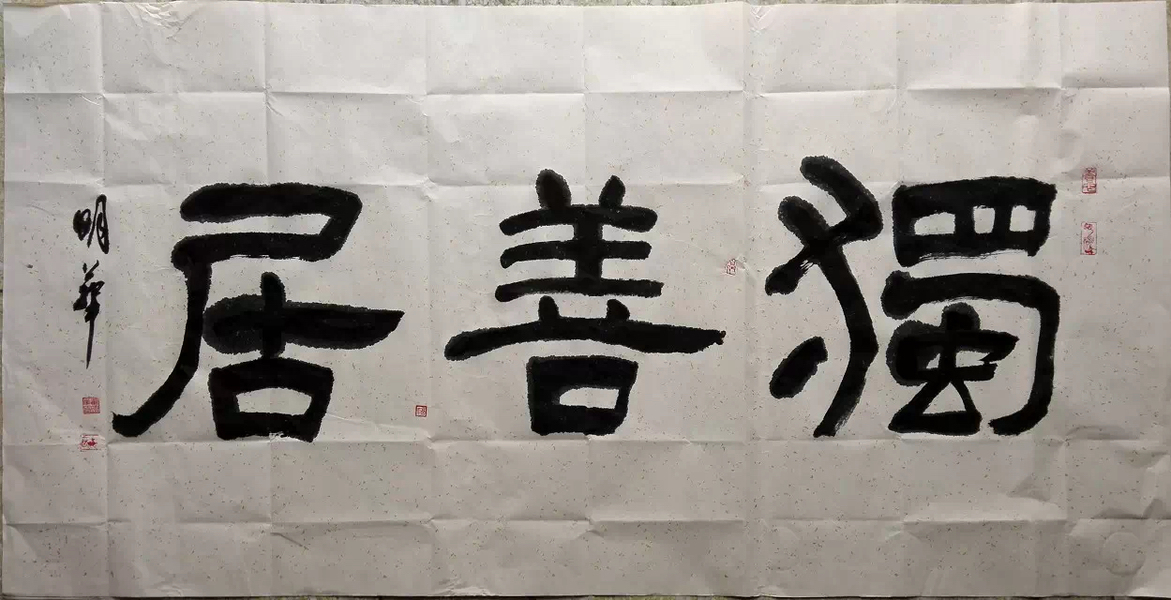 獨善居
明華